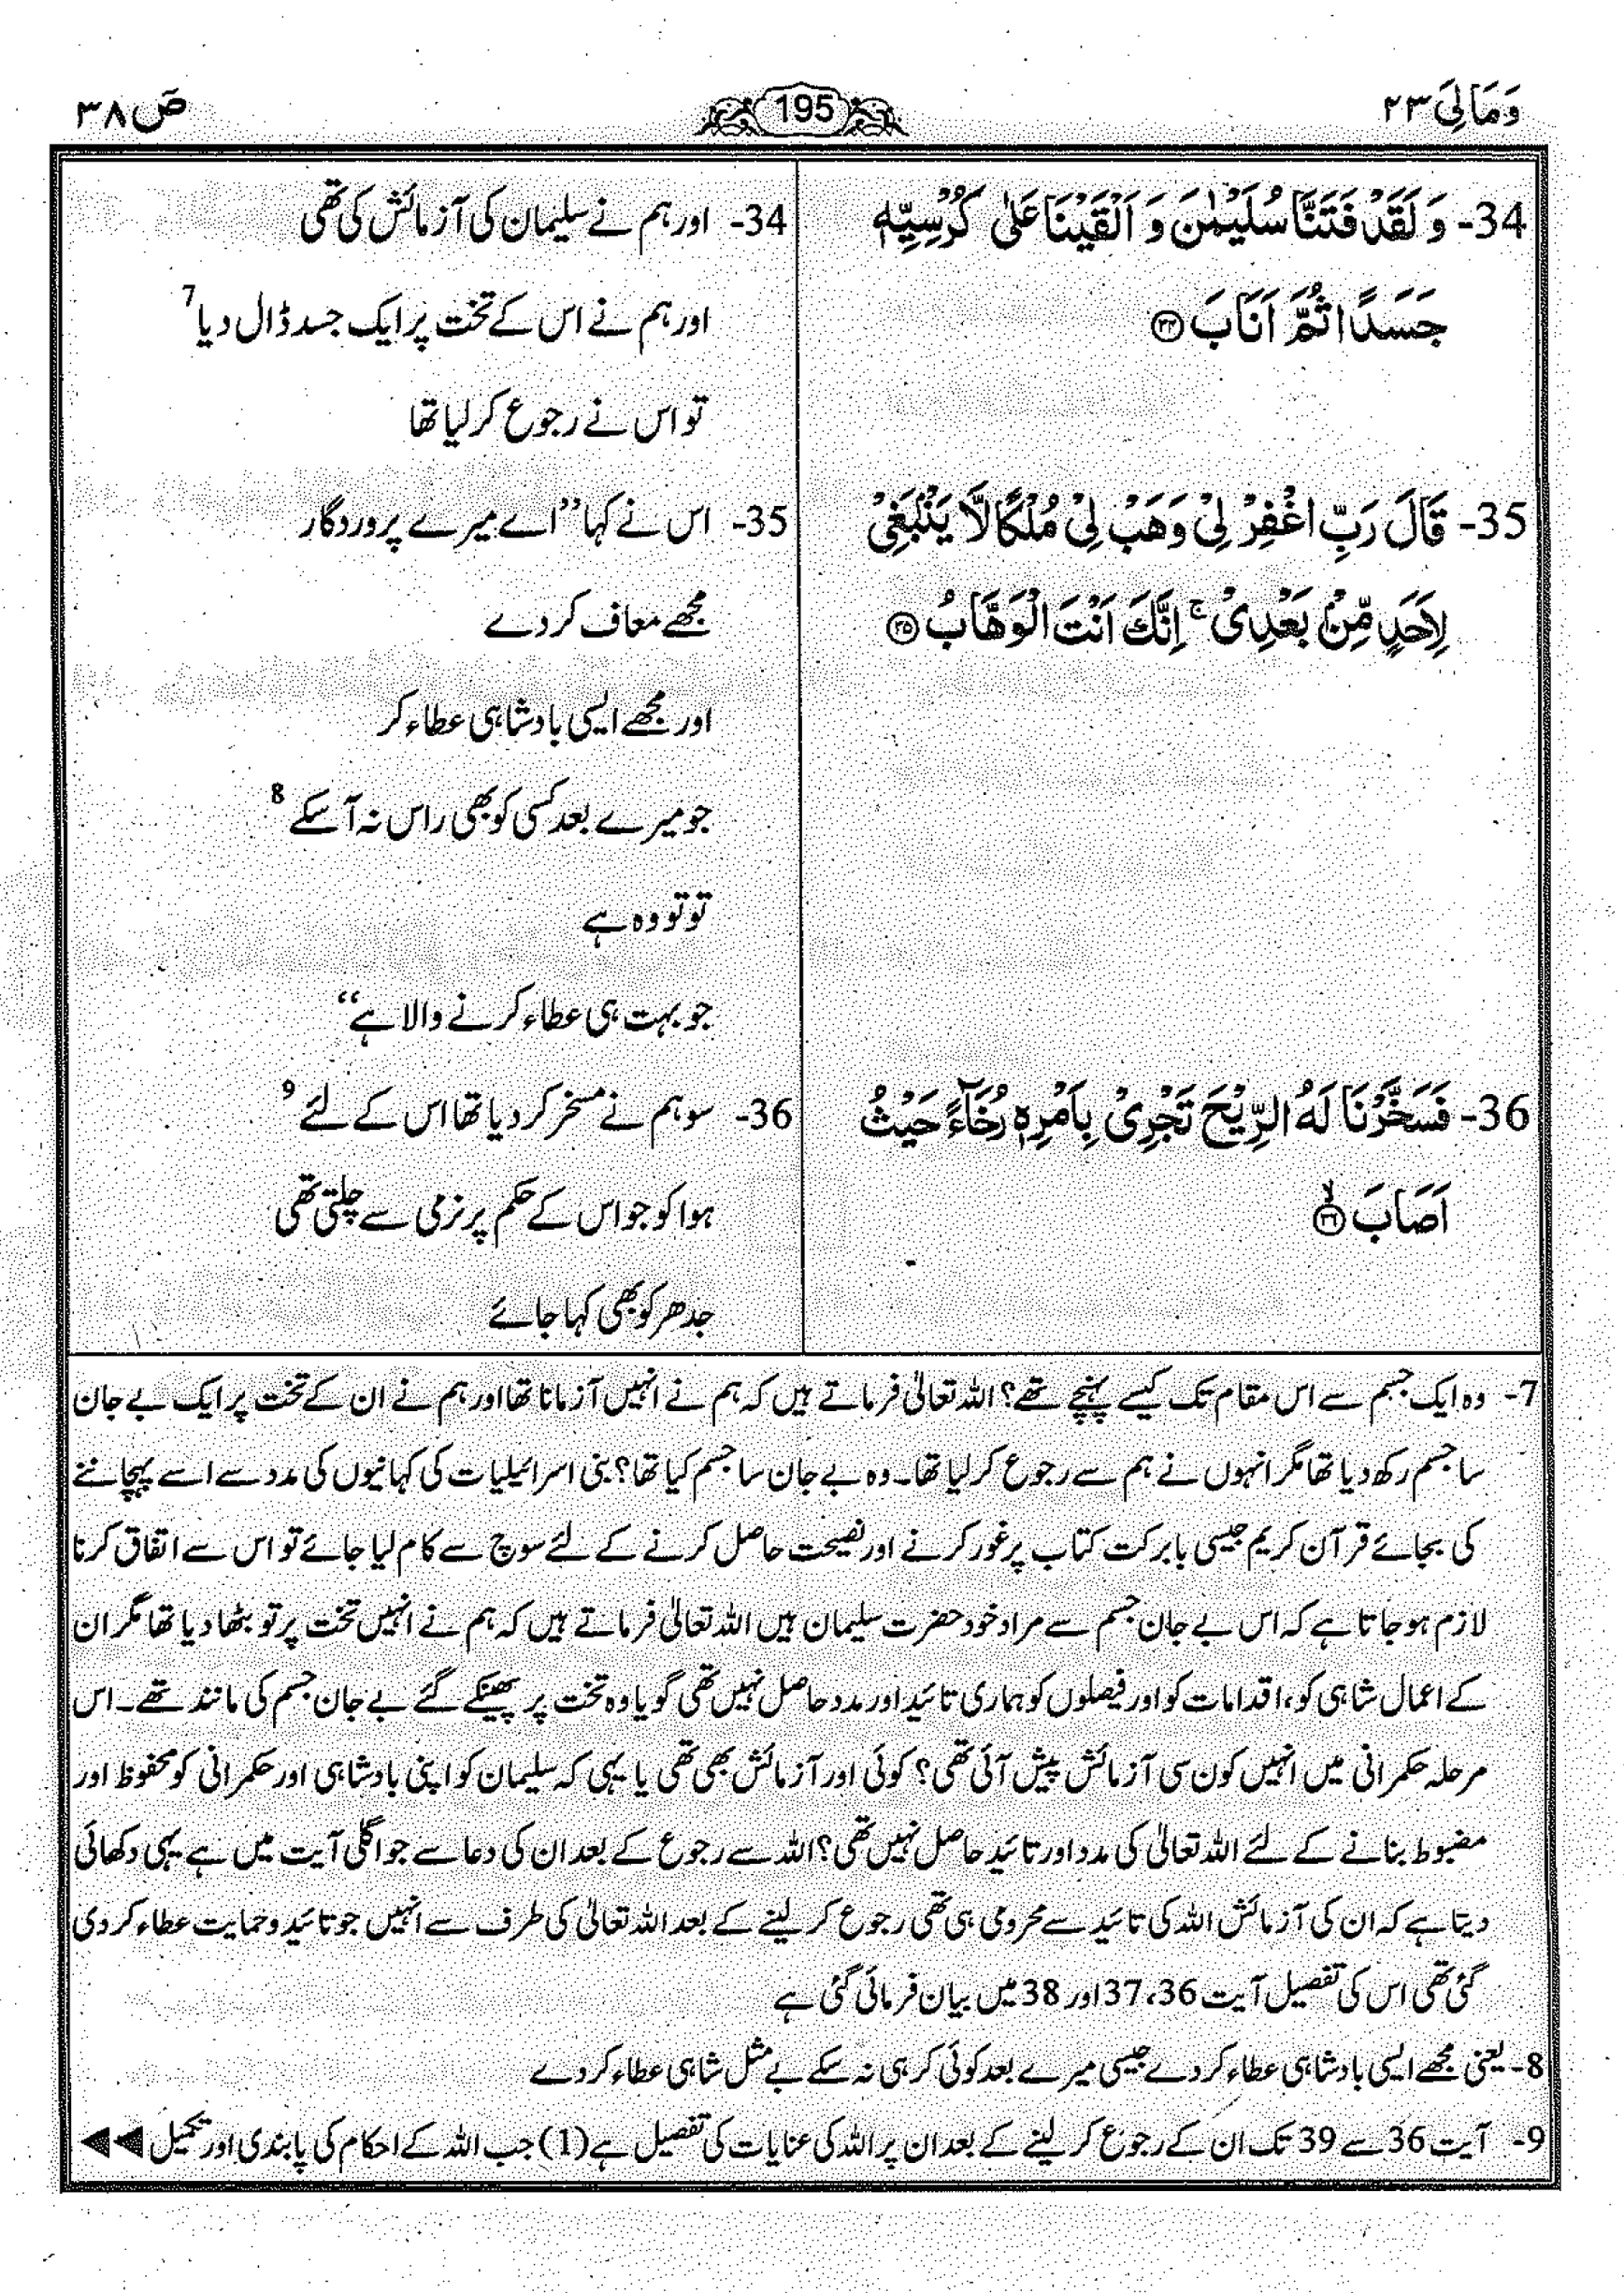 وَمَالِیَ ۲۳
195
صٓ ۳۸
34- وَ لَقَدْ فَتَنَّا سُلَیْمٰنَ وَ اَلْقَیْنَا عَلٰی كُرْسِیِّهٖ
جَسَدًا ثُمَّ اَنَابَ ۝۳۴
35- قَالَ رَبِّ اغْفِرْ لِیْ وَ هَبْ لِیْ مُلْكًا لَّا یَنْۢبَغِیْ
لِاَحَدٍ مِّنْۢ بَعْدِیْ ۚ اِنَّكَ اَنْتَ الْوَهَّابُ ۝۳۵
36- فَسَخَّرْنَا لَهُ الرِّیْحَ تَجْرِیْ بِاَمْرِهٖ رُخَآءً حَیْثُ
اَصَابَ ۙ۝۳۶
34- اور ہم نے سلیمان کی آزمائش کی تھی
اور ہم نے اس کے تخت پر ایک جسد ڈال دیا 7
تو اس نے رجوع کر لیا تھا
35- اس نے کہا ’’اے میرے پروردگار
مجھے معاف کر دے
اور مجھے ایسی بادشاہی عطاء کر
جو میرے بعد کسی کو بھی راس نہ آ سکے 8
تو تو وہ ہے
جو بہت ہی عطاء کرنے والا ہے‘‘
36- سو ہم نے مسخر کر دیا تھا اس کے لئے 9
ہوا کو جو اس کے حکم پر نرمی سے چلتی تھی
جدھر کو بھی کہا جائے
7- وہ ایک جسم سے اس مقام تک کیسے پہنچے تھے؟ اللہ تعالیٰ فرماتے ہیں کہ ہم نے انہیں آزمانا تھا اور ہم نے ان کے تخت پر ایک بے جان
سا جسم رکھ دیا تھا مگر انہوں نے ہم سے رجوع کر لیا تھا۔ وہ بے جان سا جسم کیا تھا؟ بنی اسرائیلیات کی کہانیوں کی مدد سے اسے پہچاننے
کی بجائے قرآن کریم جیسی بابرکت کتاب پر غور کرنے اور نصیحت حاصل کرنے کے لئے سوچ سے کام لیا جائے تو اس سے اتفاق کرنا
لازم ہو جاتا ہے کہ اس بے جان جسم سے مراد خود حضرت سلیمان ہیں اللہ تعالیٰ فرماتے ہیں کہ ہم نے انہیں تخت پر تو بٹھا دیا تھا مگر ان
کے اعمال شاہی کو، اقدامات کو اور فیصلوں کو ہماری تائید اور مدد حاصل نہیں تھی گویا وہ تخت پر پھینکے گئے بے جان جسم کی مانند تھے۔ اس
مرحلہ حکمرانی میں انہیں کون سی آزمائش پیش آئی تھی؟ کوئی اور آزمائش بھی تھی یا یہی کہ سلیمان کو اپنی بادشاہی اور حکمرانی کو محفوظ اور
مضبوط بنانے کے لئے اللہ تعالیٰ کی مدد اور تائید حاصل نہیں تھی؟ اللہ سے رجوع کے بعد ان کی دعا سے جو اگلی آیت میں ہے یہی دکھائی
دیتا ہے کہ ان کی آزمائش اللہ کی تائید سے محرومی ہی تھی رجوع کر لینے کے بعد اللہ تعالیٰ کی طرف سے انہیں جو تائید و حمایت عطاء کر دی
گئی تھی اس کی تفصیل آیت 36، 37 اور 38 میں بیان فرمائی گئی ہے
8- یعنی مجھے ایسی بادشاہی عطاء کر دے جیسی میرے بعد کوئی کر ہی نہ سکے بے مثل شاہی عطاء کر دے
9- آیت 36 سے 39 تک ان کے رجوع کر لینے کے بعد ان پر اللہ کی عنایات کی تفصیل ہے (1) جب اللہ کے احکام کی پابندی اور تکمیل ◄◄